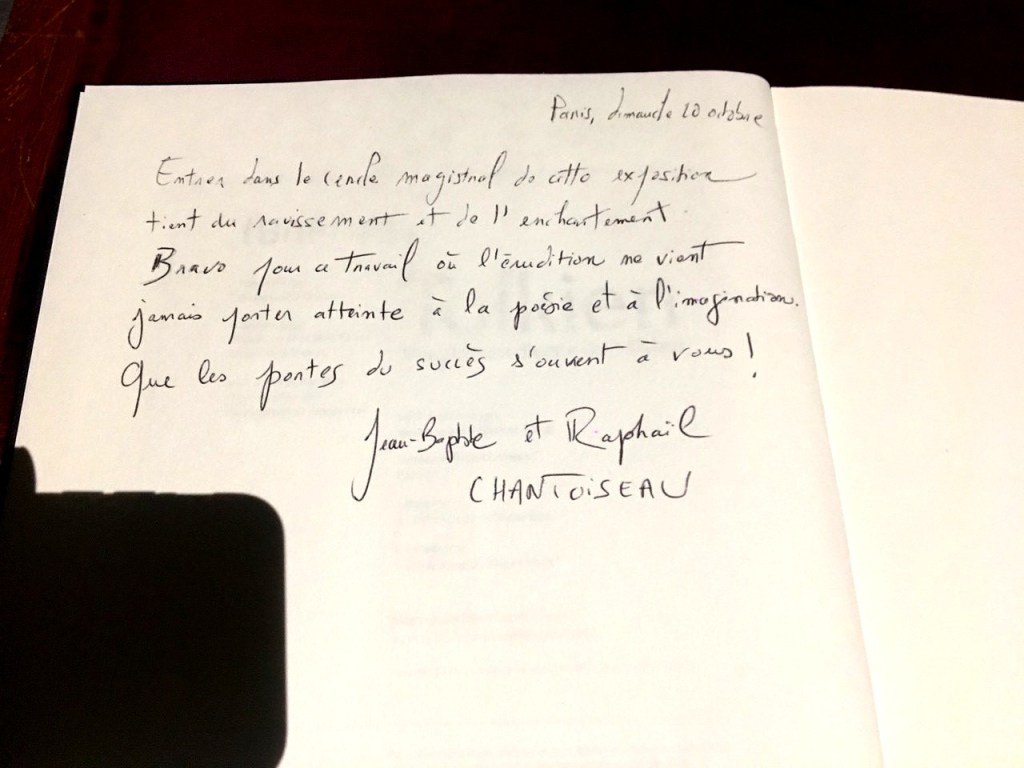 Paris, dimanche 20 octobre
Entrer dans le cercle magistral de cette exposition
tient du ravissement et de l'enchantement.
Bravo pour ce travail où l'érudition ne vient
jamais porter atteinte à la poésie et à l'imagination.
Que les portes du succès s'ouvrent à vous !
Jean-Baptiste et Raphaël
CHANTOISEAU